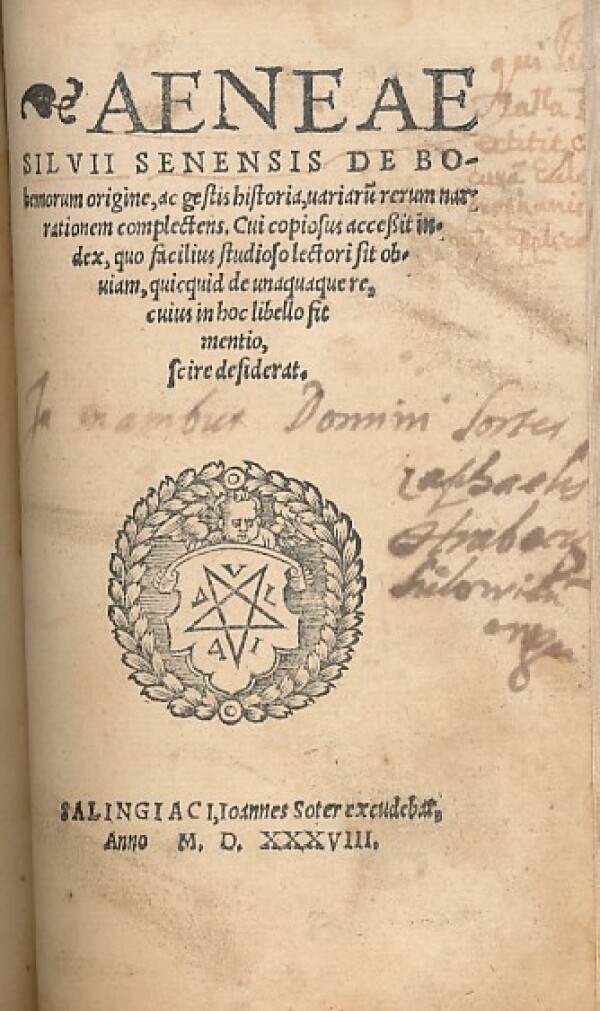 AENEAE
SILVII SENENSIS DE BO-
hemorum origine, ac gestis historia, uariarũ rerum nar-
rationem complectens. Cui copiosus acceßit in-
dex, quo facilius studioso lectori sit ob-
uiam, quicquid de unaquaque re,
cuius in hoc libello fit
mentio,
scire desiderat.
In manibus Domini sortes
raphaelis
V
A L
A I
SALINGIACI, Ioannes Soter excudebat,
Anno M. D. XXXVIII.